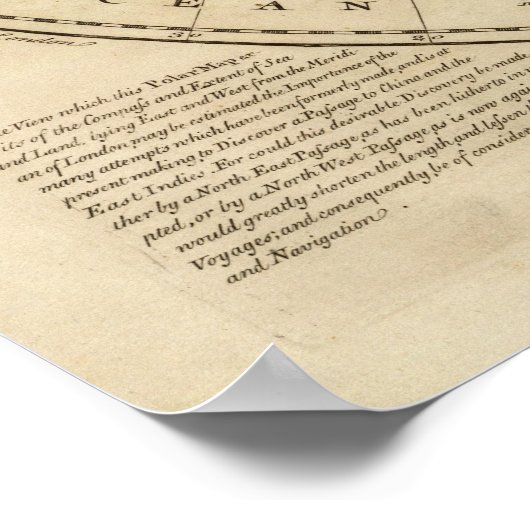 C E A N
30 40
London
e View which this Polar Map ex-
its of the Compass and Extent of Sea
and Land, lying East and West from the Meridi
an of London may be estimated the Importance of the
many attempts which have been formerly made, and is at
present making to Discover a Passage to China and the
East Indies. For could this desirable Discovery be made
ther by a North East Passage as has been hitherto in
pted, or by a North West Passage as is now again
would greatly shorten the length, and lessen
Voyages; and consequently be of conside
and Navigation